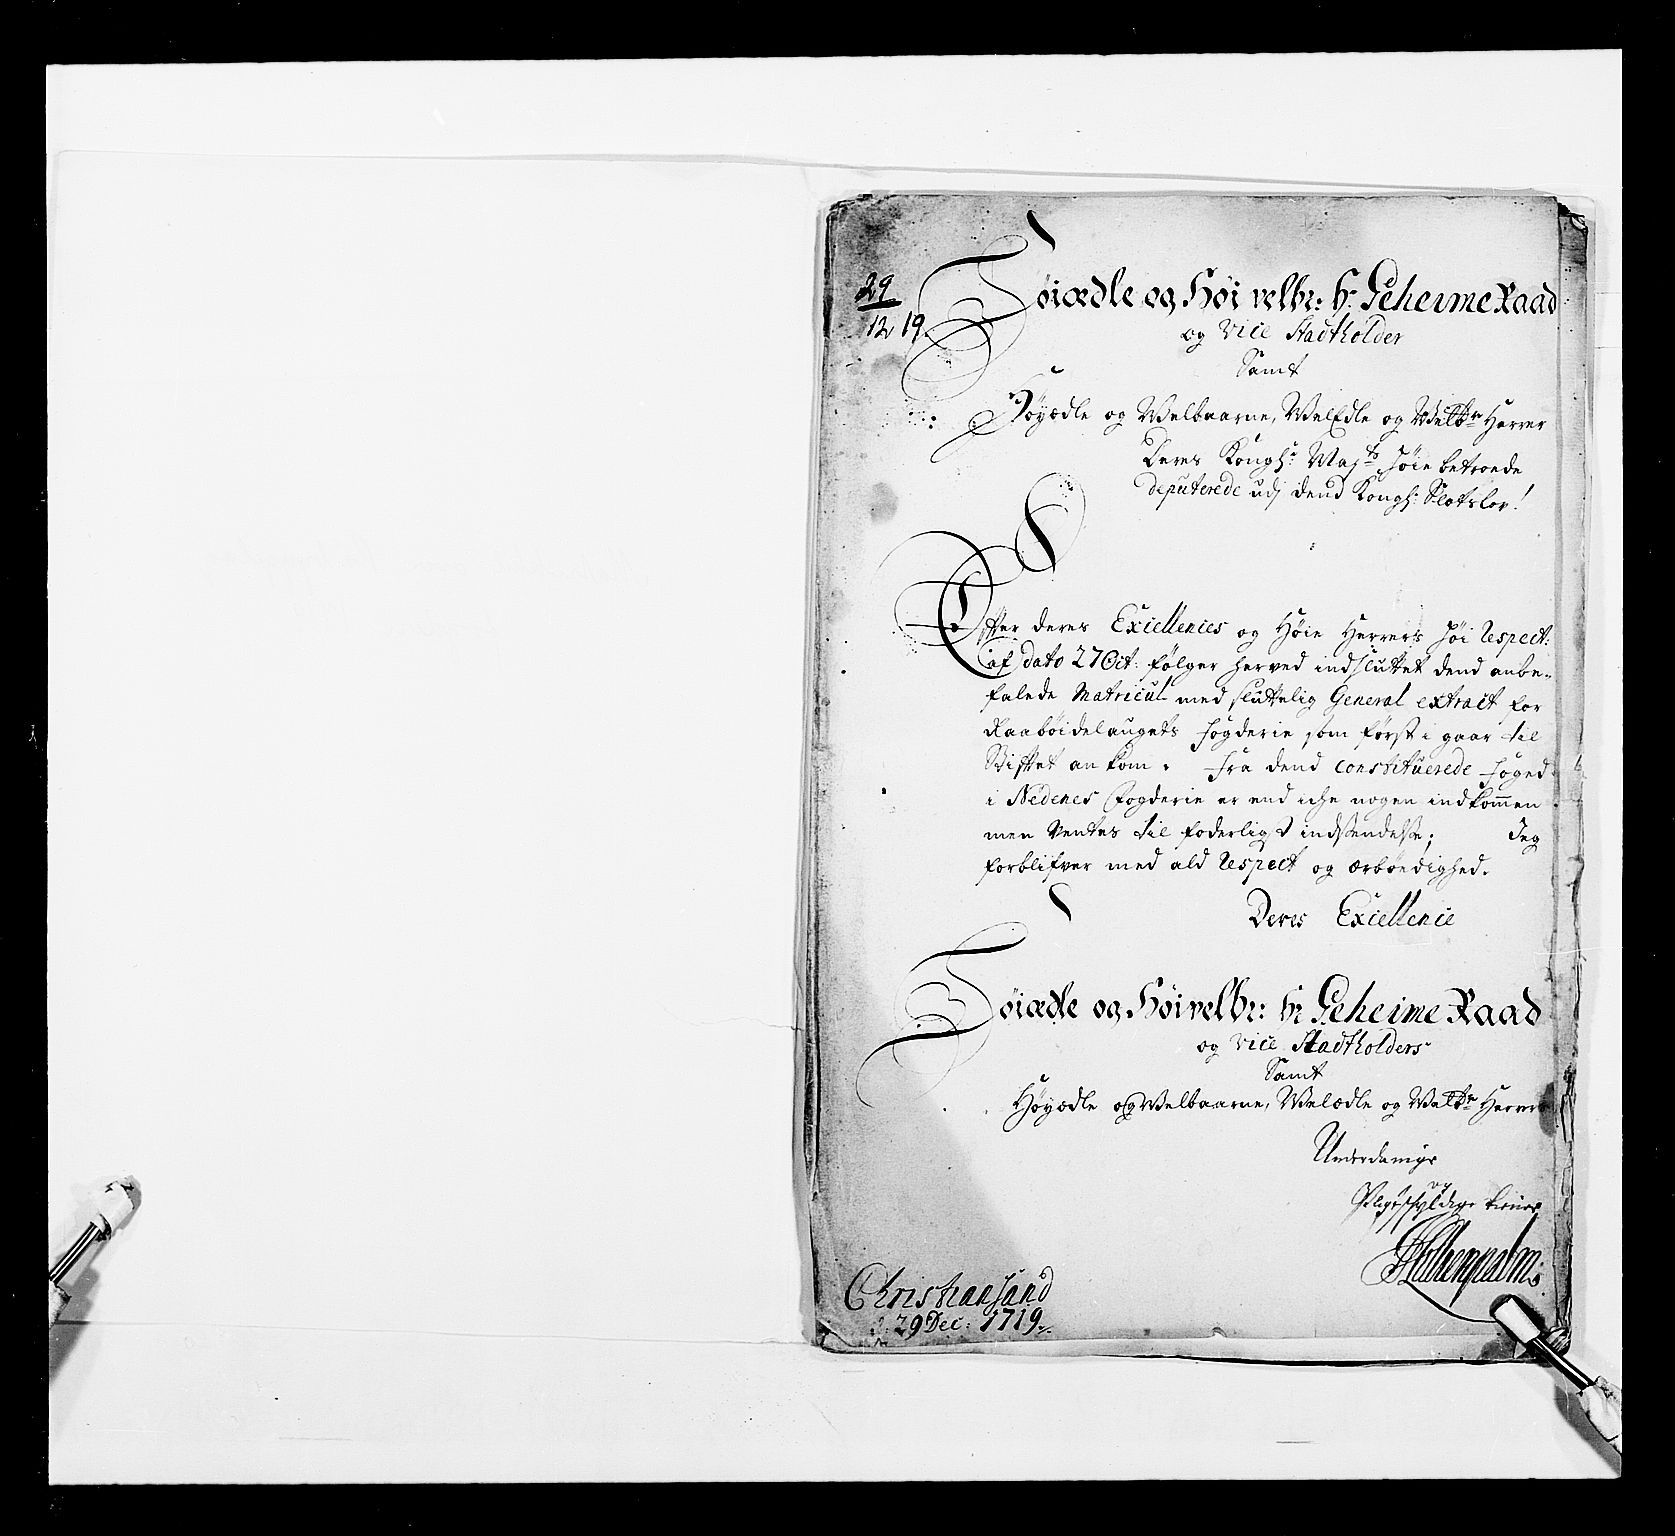 29
12 19.
Høiædle og Høi velbr: Hr Geheime Raad
og Vice Stadtholder
Samt
Høyædle og Welbaarne, WelEdle og Welbrn Herrer
Deres Kongl: Majts Høie betroede
deputerede udj dend Kongl: Slotslov!
Efter deres Excellences og Høie Herrers Høi Respect:
af dato 27 Oct: følger herved indsluttet dend anbe-
falede Matricul med sluttelig General extract for
Raabøidelaugets fogderie som først i gaar til
Stiftet ankom. fra dend constituerede foged
i Nedenes fogderie er end iche nogen indkommen
men ventes til foderligst indsendelse; Jeg
forblifver med ald Respect og ærbødighed.
Deres Excellence
Høiædle og Høivelbr: Hr Geheime Raad
og Vice Stadtholders
Samt
Høyædle og Welbaarne, Welædle og Welbrn Herrers
Underdanige
og
Pligtskyldige tiener
Christiansand
d. 29 Dec: 1719.